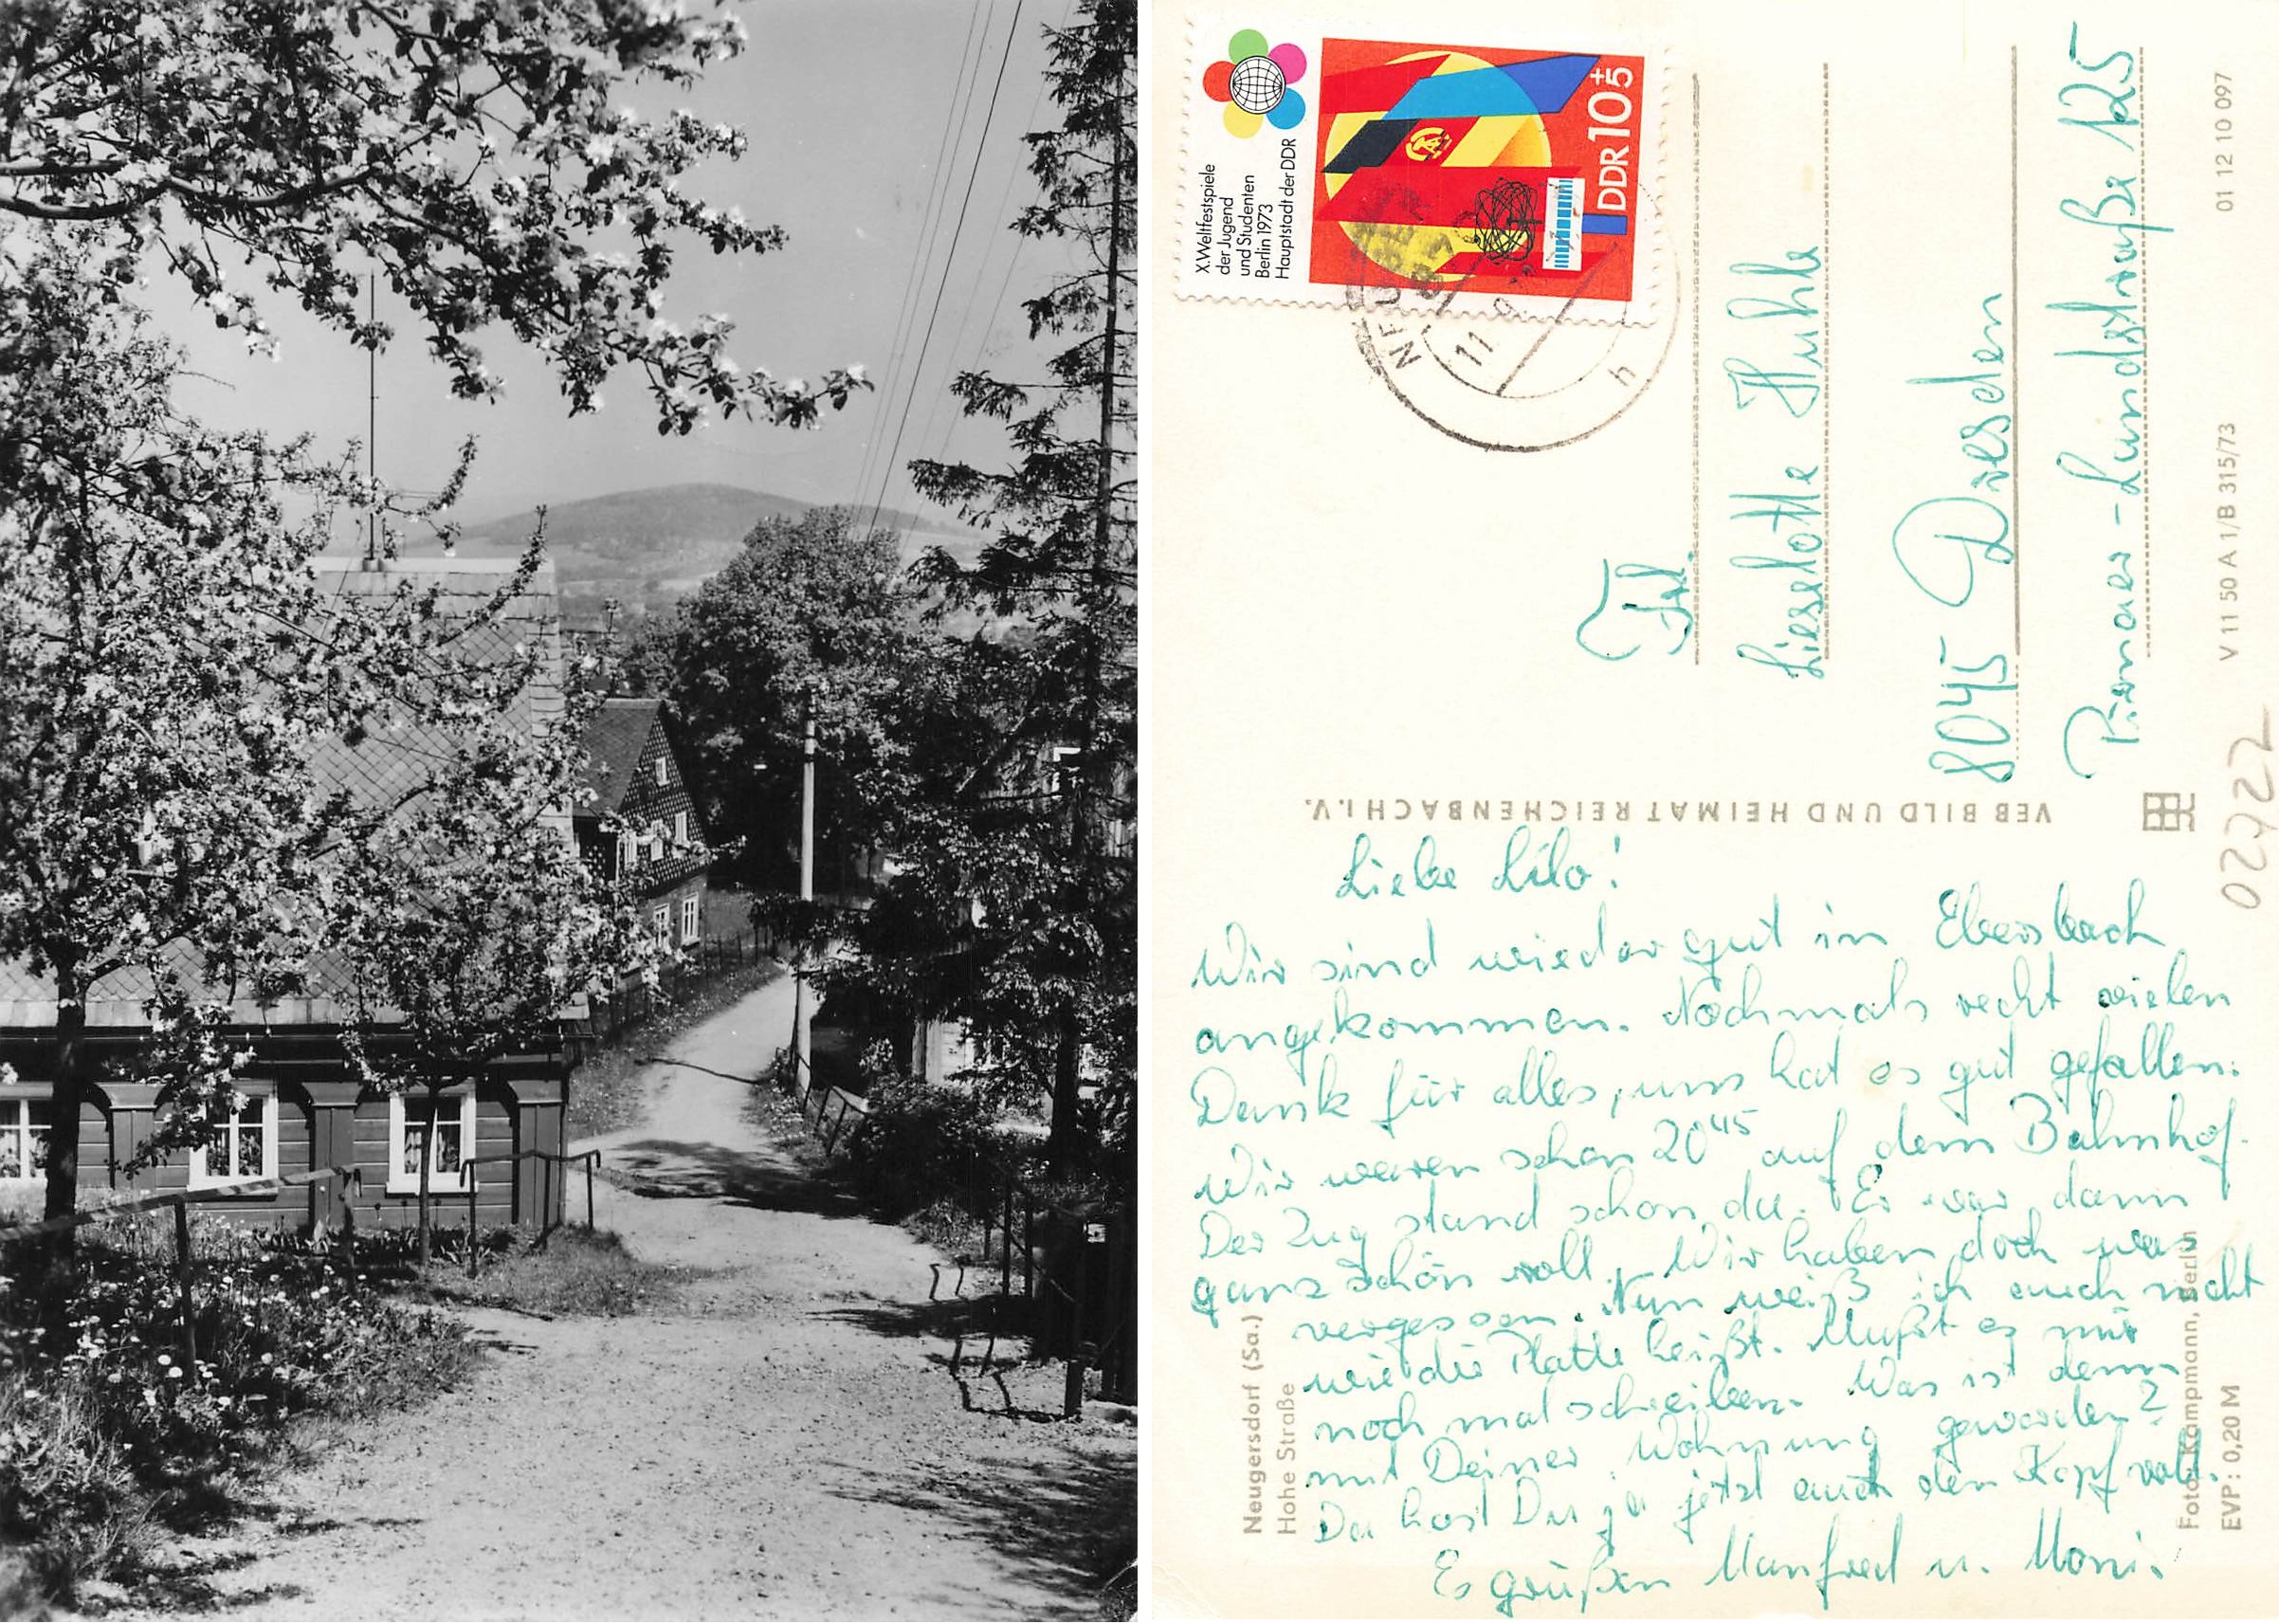 X. Weltfestspiele
der Jugend
und Studenten
Berlin 1973
Hauptstadt der DDR
DDR 10+5
11. 9.
h
Frl.
Lieselotte Huhle
8045 Dresden
Pirnaer-Landstraße 125
VEB BILD UND HEIMAT REICHENBACH I. V.
V 11 50 A 1/B 315/73
01 12 10 097
02722
Liebe Lilo!
Wir sind wieder gut in Ebersbach
angekommen. Nochmals recht vielen
Dank für alles, uns hat es gut gefallen.
Wir waren schon 20 45 auf dem Bahnhof.
Der Zug stand schon da. Er war dann
ganz schön voll. Wir haben doch was
vergessen. Nun weiß ich auch nicht
wie die Platte heißt. Mußt es mir
noch mal schreiben. Was ist denn
mit Deiner Wohnung geworden?
Da hast Du ja jetzt auch den Kopf voll.
Es grüßen Manfred u. Moni.
Neugersdorf (Sa.)
Hohe Straße
Foto: Kampmann, Berlin
EVP: 0,20 M